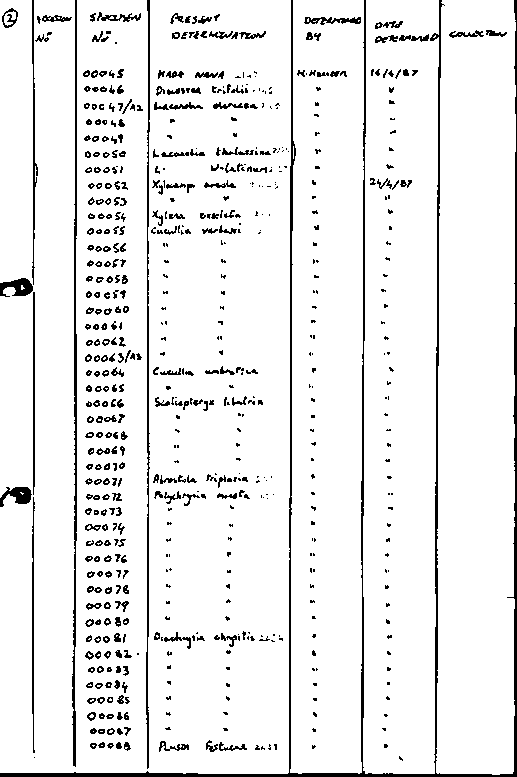 2
SPECIMEN PRESENT DETERMINED DATE
No No. DETERMINATION BY DETERMINED COLLECTION
00045 NANA 16/4/87
00046 trifolii " "
00047/A2 Lacanobia oleracea " "
00048 " " " "
00049 " " " "
00050 Lacanobia thalassina " "
00051 L. W-latinum " "
00052 " 24/4/87
00053 " " " "
00054 Xylena exsoleta " "
00055 Cucullia verbasci " "
00056 " " " "
00057 " " " "
00058 " " " "
00059 " " " "
00060 " " " "
00061 " " " "
00062 " " " "
00063/A3 " " " "
00064 Cucullia umbratica " "
00065 " " " "
00066 Scoliopteryx libatrix " "
00067 " " " "
00068 " " " "
00069 " " " "
00070 " " " "
00071 Abrostola triplasia " "
00072 Polychrysia moneta " "
00073 " " " "
00074 " " " "
00075 " " " "
00076 " " " "
00077 " " " "
00078 " " " "
00079 " " " "
00080 " " " "
00081 Diachrysia chrysitis " "
00082 " " " "
00083 " " " "
00084 " " " "
00085 " " " "
00086 " " " "
00087 " " " "
00088 Festucae " "